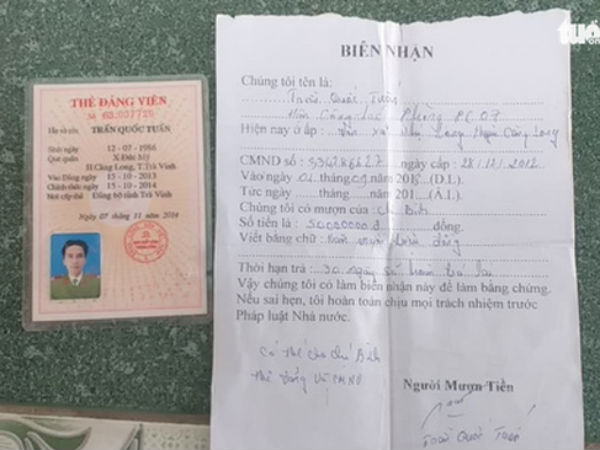 THẺ ĐẢNG VIÊN
Số 63.037725
Họ và tên TRẦN QUỐC TUẤN
Sinh ngày 12-07-1986
Quê quán X.Đức Mỹ
H.Càng Long, T.Trà Vinh
Vào Đảng ngày 15-10-2013
Chính thức ngày 15-10-2014
Nơi cấp thẻ Đảng bộ tỉnh Trà Vinh
Ngày 07 tháng 11 năm 2014
tuổi
BIÊN NHẬN
Chúng tôi tên là:
Trần Quốc Tuấn
Hiện Công tác Phòng PC 07
Hiện nay ở ấp : xã Nhị Long Huyện Càng Long
CMND số : 334286627 ngày cấp : 28/12/2012
Vào ngày 04 tháng 09 năm 2018 (D.L).
Tức ngày tháng năm 201 (Â.L).
Chúng tôi có mượn của : Bình
Số tiền là : 50000000 đ đồng.
Viết bằng chữ : Năm mươi triệu đồng
Thời hạn trả : 30 ngày sẽ hoàn trả lại
Vậy chúng tôi có làm biên nhận này để làm bằng chứng.
Nếu sai hẹn, tôi hoàn toàn chịu mọi trách nhiệm trước
Pháp luật Nhà nước.
Có thế cho chú Bình
thẻ Đảng và CMND
Người Mượn Tiền
Trần Quốc Tuấn